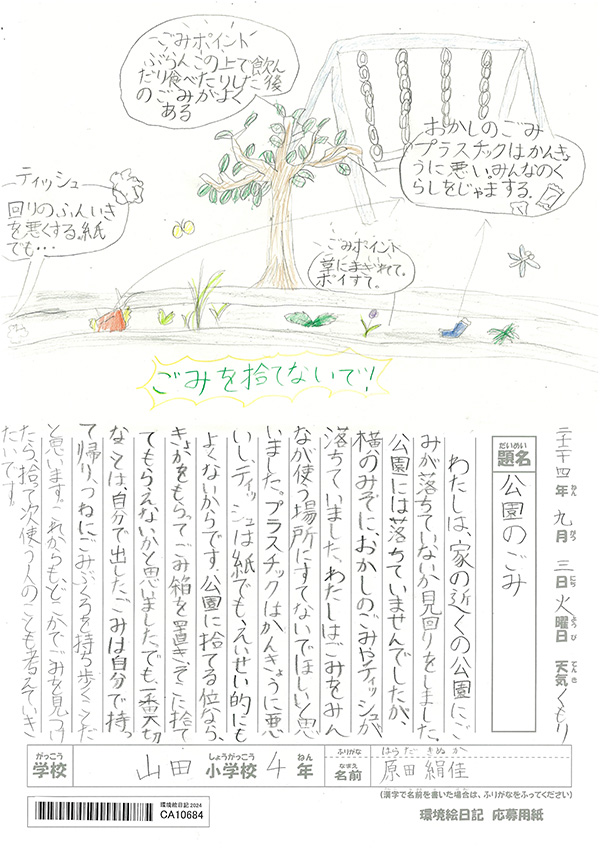 ごみポイント
ぶらんこの上で飲ん
だり食べたりした後
のごみがよく
ある
おかしのごみ
プラスチックはかんきょ
うに悪い。みんなのく
らしをじゃまする。
ティッシュ
回りのふんいき
を悪くする。紙
でも…
ごみポイント
草にまぎれて。
ポイすて。
ごみを捨てないで!
二千二十四年 九月 三日 火曜日 天気 くもり
ねん がつ にち ようび てんき
だいめい
題名 公園のごみ
わたしは、家の近くの公園にご
みが落ちていないか見回りをしました。
公園には落ちていませんでしたが、
横のみぞに、おかしのごみやティッシュが
落ちていました。わたしはごみをみん
なが使う場所にすてないでほしいと思
いました。プラスチックはかんきょうに悪
いし、ティッシュは紙でも、えいせい的にも
よくないからです。公園に捨てる位なら、
きょかをもらってごみ箱を置き、そこに捨て
てもらえないかと思いました。でも、一番大切
なことは、自分で出したごみは自分で持っ
て帰り、つねにごみぶくろを持ち歩くことだ
と思います。これからも、どこかでごみを見つけ
たら、捨て次使う人のことも考えていき
たいです。
がっこう しょうがっこう ねん
学校 山田 小学校 4 年
ふりがな はらだ きぬか
なまえ
名前 原田 絹佳
(漢字で名前を書いた場合は、ふりがなをふってください)
環境絵日記 2024
CA10684
環境絵日記 応募用紙